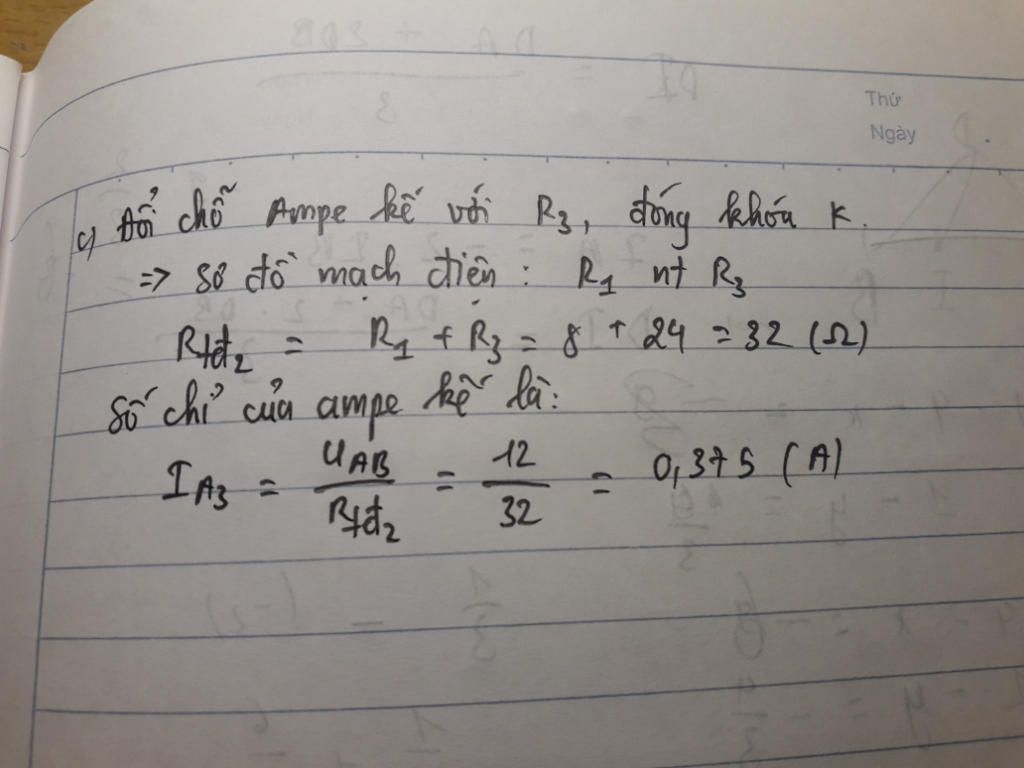 Thứ
Ngày
c) Đổi chỗ Ampe kế với R3, đóng khóa K.
=> sơ đồ mạch điện : R1 nt R3
Rtđ2 = R1 + R3 = 8 + 24 = 32 (Ω)
Số chỉ của ampe kế là:
IA3 = UAB / Rtđ2 = 12 / 32 = 0,375 (A)